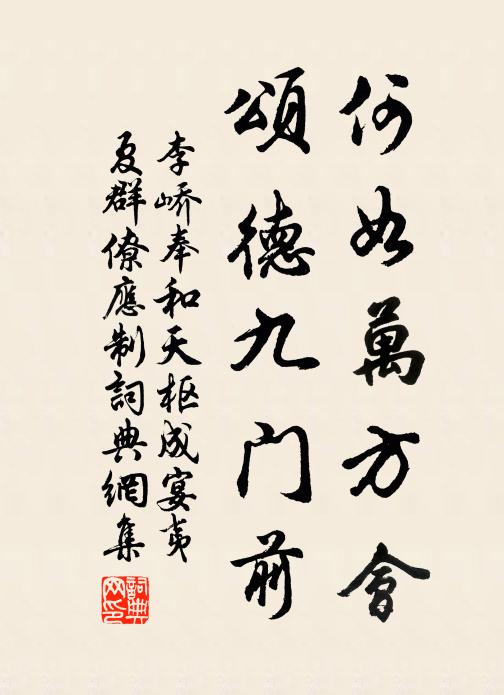 何如萬方會
頌德九门前
李峤奉和天枢成宴夷
夏群僚應制詞典網集
詞典网印